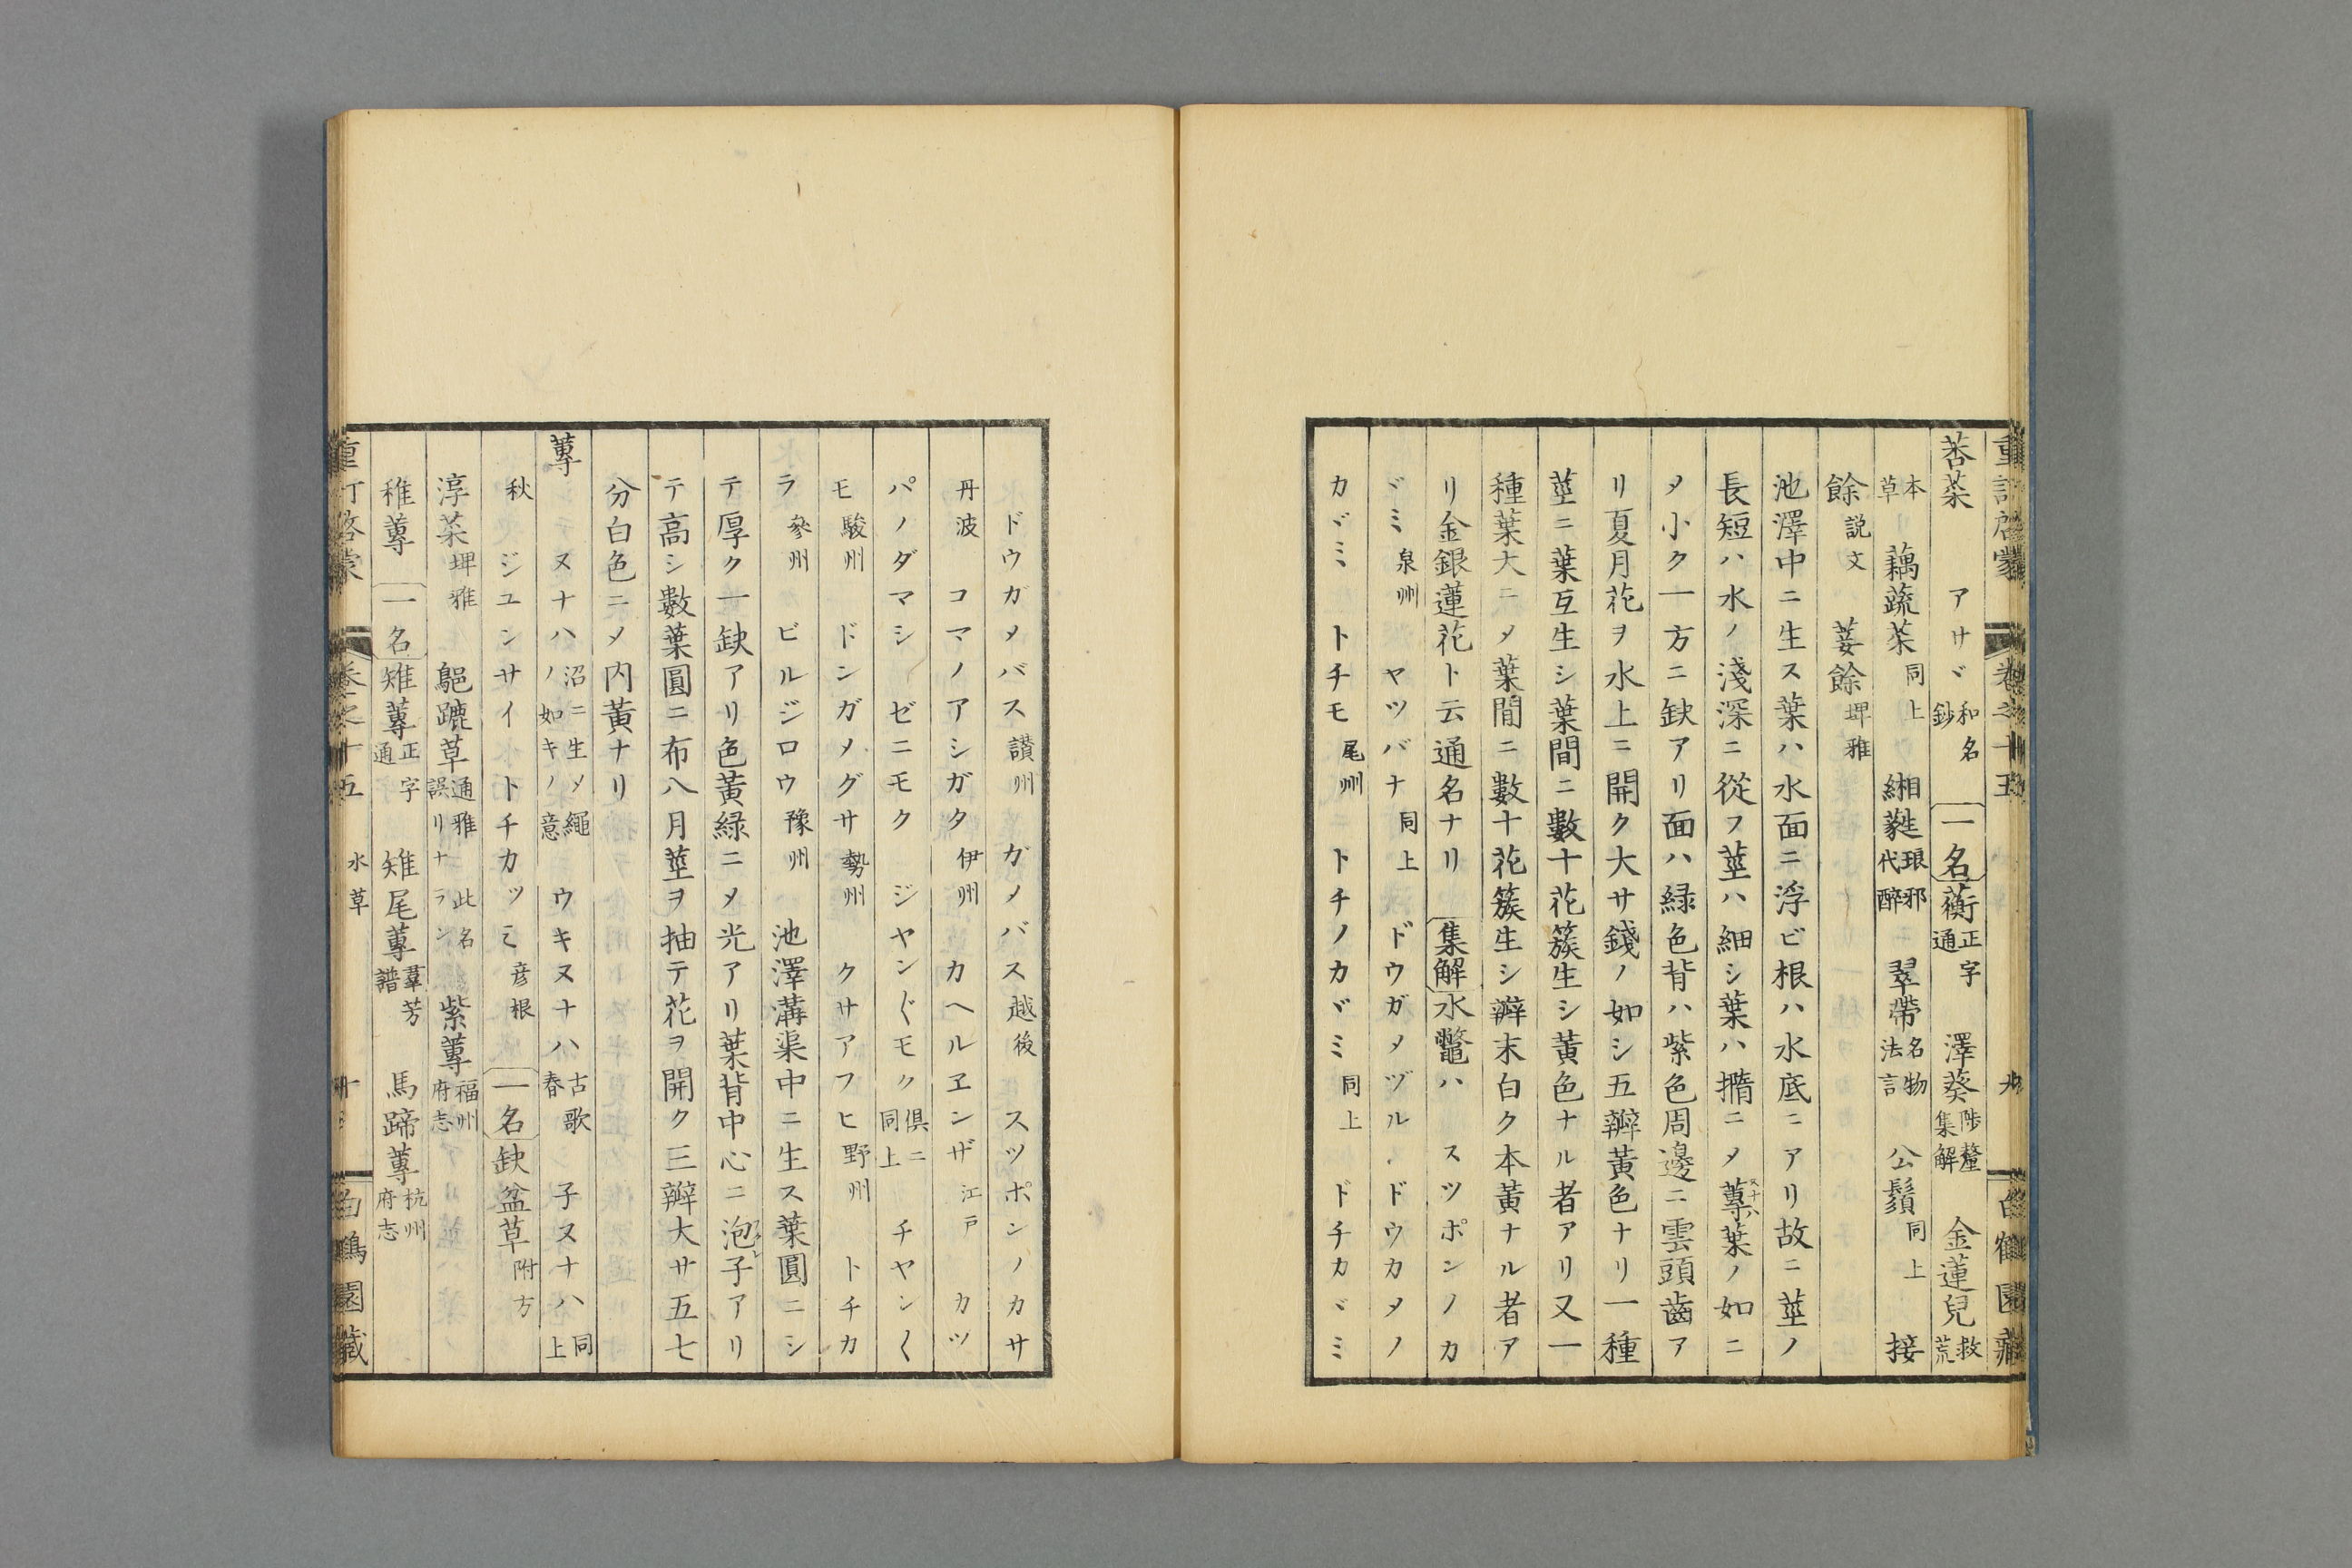 重訂啓蒙 卷之十五 九 白鶴園藏
莕菜 アサヾ 和名鈔 一名 蘅 正字通 澤葵 陟釐集解 金蓮兒 救荒
本草 藕蔬菜 同上 緗蕤 琅邪代醉 翠帶 名物法言 公鬚 同上 接
餘 説文 菨餘 埤雅
池澤中ニ生ス葉ハ水面ニ浮ビ根ハ水底ニアリ故ニ莖ノ
長短ハ水ノ淺深ニ從フ莖ハ細シ葉ハ撱ニメ蓴葉ノ如ニ
メ小ク一方ニ缺アリ面ハ緑色背ハ紫色周邊ニ雲頭齒ア
リ夏月花ヲ水上ニ開ク大サ錢ノ如シ五瓣黃色ナリ一種
莖ニ葉互生シ葉間ニ數十花簇生シ黃色ナル者アリ又一
種葉大ニメ葉間ニ數十花簇生シ瓣末白ク本黃ナル者ア
リ金銀蓮花ト云通名ナリ 集解 水鼈ハ スツポンノカ
ヾミ 泉州 ヤツバナ 同上 ドウガメヅル ドウカメノ
カヾミ トチモ 尾州 トチノカヾミ 同上 ドチカヾミ
ドウガメバス 讃州 ガメバス 越後 スツポンノカサ
丹波 コマノアシガタ 伊州 カヘルヱンザ 江戸 カツ
パノダマシ ゼニモク ジヤン〴〵モク 倶ニ同上 チヤン〱
モ 駿州 ドンガメグサ 勢州 クサアフヒ 野州 トチカ
ラ 參州 ビルジロウ 豫州 池澤溝渠中ニ生ス葉圓ニシ
テ厚ク一缺アリ色黃緑ニメ光アリ葉背中心ニ泡子アリ
テ高シ數葉圓ニ布八月莖ヲ抽テ花ヲ開ク三瓣大サ五七
分白色ニメ内黃ナリ
蓴 ヌナハ 沼ニ生メ繩ノ如キノ意 ウキヌナハ 古歌春 子ヌナハ 同上
秋 ジユンサイ トチカツミ 彦根 一名 缺盆草 附方
淳菜 埤雅 䳃蹗草 通雅此名誤リナラン 紫蓴 福州府志
稚蓴 一名 雉蓴 正字通 雉尾蓴 羣芳譜 馬蹄蓴 杭州府志
重訂啓蒙 卷之十五 水草 白鶴園藏